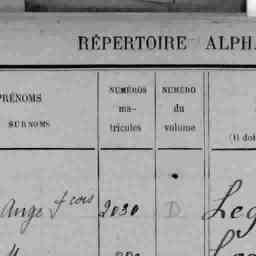 RÉPERTOIRE ALPH
PRÉNOMS
SURNOMS
NUMÉROS
ma-
tricules
NUMÉRO
du
volume
(Il doi
Ange fcois 2030 D Leg